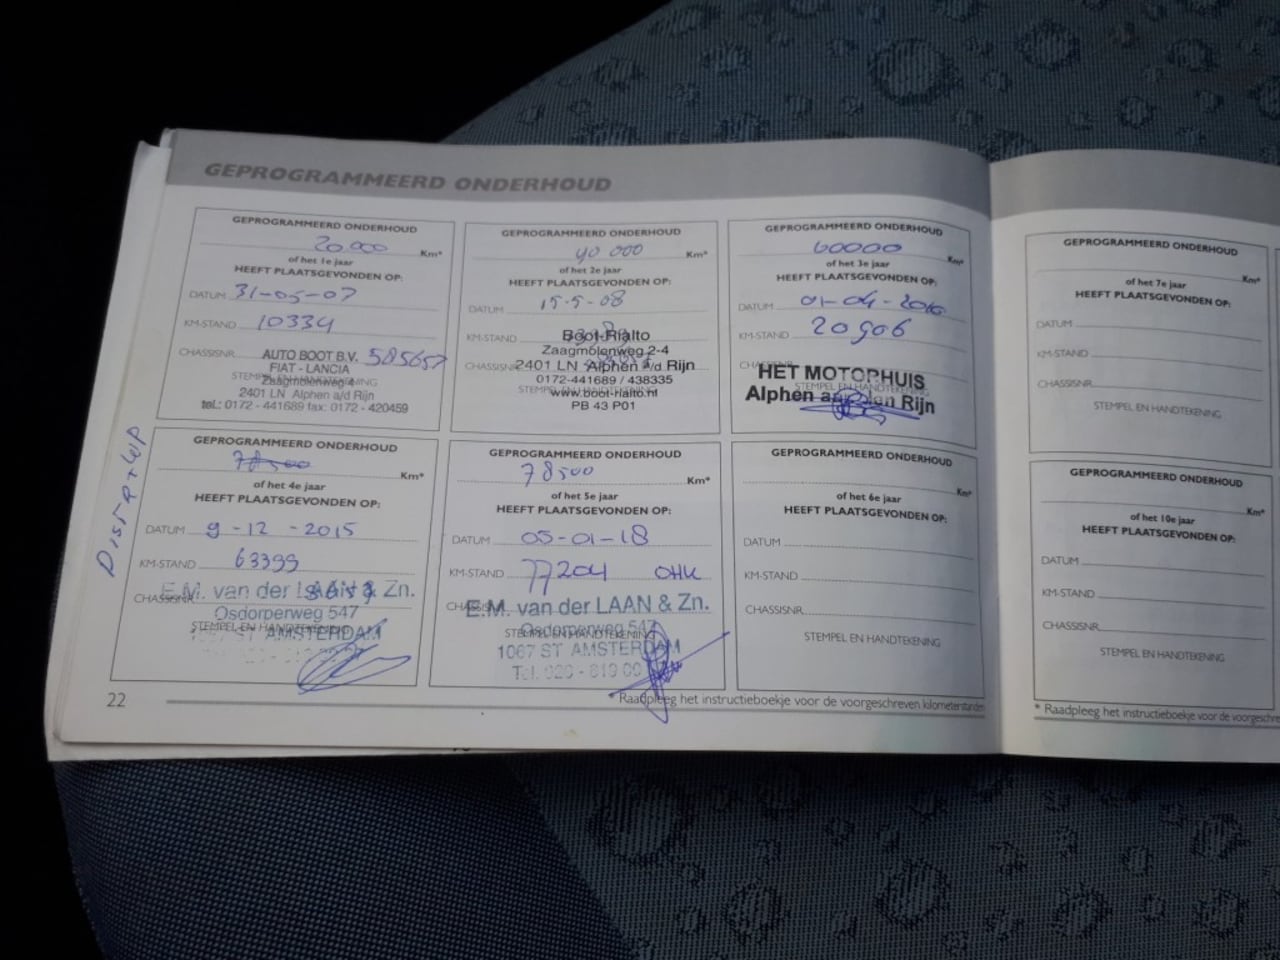 GEPROGRAMMEERD ONDERHOUD
GEPROGRAMMEERD ONDERHOUD
20.000 Km*
of het 1e jaar
HEEFT PLAATSGEVONDEN OP:
DATUM 31-05-07
KM-STAND 10334
CHASSISNR. 585657
AUTO BOOT B.V.
FIAT - LANCIA
STEMPEL EN HANDTEKENING
Zaagmolenweg 4
2401 LN Alphen a/d Rijn
tel.: 0172 - 441689 fax: 0172 - 420459
GEPROGRAMMEERD ONDERHOUD
40 000 Km*
of het 2e jaar
HEEFT PLAATSGEVONDEN OP:
DATUM 15-5-08
KM-STAND
Boot-Rialto
Zaagmolenweg 2-4
CHASSISNR.
2401 LN Alphen a/d Rijn
0172-441689 / 438335
STEMPEL EN HANDTEKENING
www.boot-rialto.nl
PB 43 P01
GEPROGRAMMEERD ONDERHOUD
60000 Km*
of het 3e jaar
HEEFT PLAATSGEVONDEN OP:
DATUM 01-04-2010
KM-STAND 20906
HET MOTORHUIS
STEMPEL EN HANDTEKENING
Alphen aan den Rijn
GEPROGRAMMEERD ONDERHOUD
78500 Km*
of het 4e jaar
HEEFT PLAATSGEVONDEN OP:
DATUM 9-12-2015
KM-STAND 63399
CHASSISNR.
E.M. van der LAAN & Zn.
Osdorperweg 547
STEMPEL EN HANDTEKENING
1067 ST AMSTERDAM
GEPROGRAMMEERD ONDERHOUD
78500 Km*
of het 5e jaar
HEEFT PLAATSGEVONDEN OP:
DATUM 05-01-18
KM-STAND 77204 OHK
E.M. van der LAAN & Zn.
Osdorperweg 547
STEMPEL EN HANDTEKENING
1067 ST AMSTERDAM
Tel. 020 - 619 00
GEPROGRAMMEERD ONDERHOUD
Km*
of het 6e jaar
HEEFT PLAATSGEVONDEN OP:
DATUM
KM-STAND
CHASSISNR.
STEMPEL EN HANDTEKENING
22
* Raadpleeg het instructieboekje voor de voorgeschreven kilometerstanden
GEPROGRAMMEERD ONDERHOUD
Km*
of het 7e jaar
HEEFT PLAATSGEVONDEN OP:
DATUM
KM-STAND
CHASSISNR.
STEMPEL EN HANDTEKENING
GEPROGRAMMEERD ONDERHOUD
Km*
of het 10e jaar
HEEFT PLAATSGEVONDEN OP:
DATUM
KM-STAND
CHASSISNR.
STEMPEL EN HANDTEKENING
* Raadpleeg het instructieboekje voor de voorgeschre